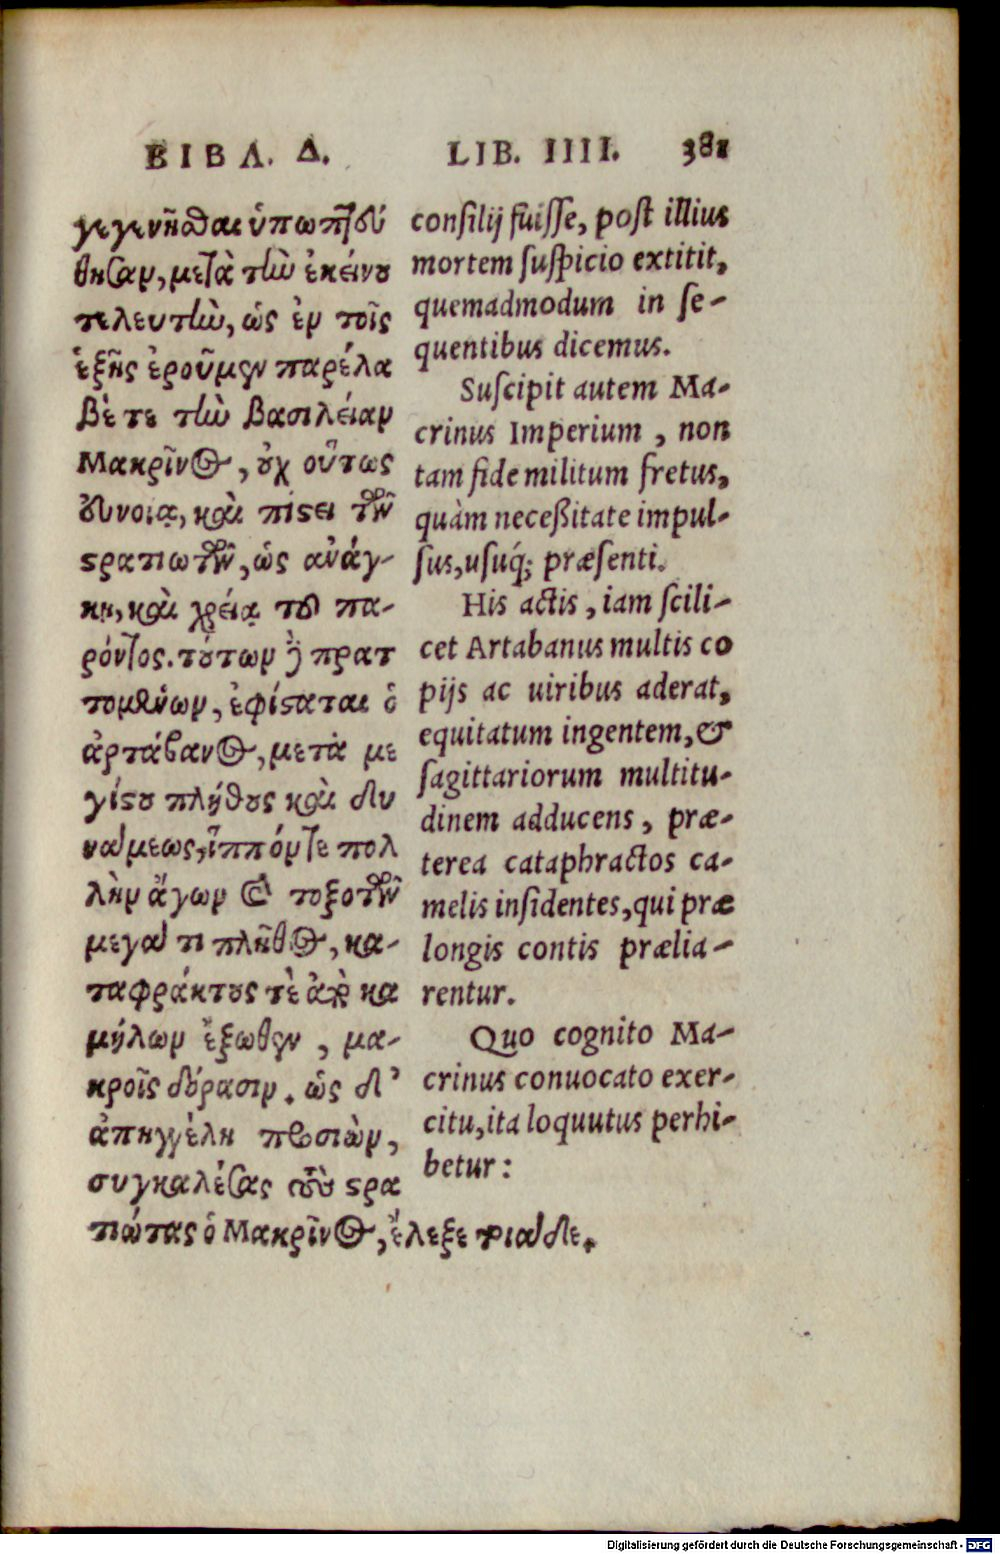 ΒΙΒΛ. Δ.
γεγενῆσθαι ὑπωπτεύ
θησαν, μετὰ τὴν ἐκείνου
τελευτὴν, ὡς ἐν τοῖς
ἑξῆς ἐροῦμεν παρέλα
βέ τε τὴν βασιλείαν
Μακρῖνος, οὐχ οὕτως
εὐνοίᾳ, καὶ πίστει τῶν
στρατιωτῶν, ὡς ἀνάγ-
κῃ, καὶ χρείᾳ τοῦ πα-
ρόντος. τούτων δὲ πρατ
τομένων, ἐφίσταται ὁ
ἀρτάβανος, μετὰ με
γίστου πλήθους καὶ δυ
νάμεως, ἵππόν τε πολ
λὴν ἄγων καὶ τοξοτῶν
μέγα τι πλῆθος, κα-
ταφράκτους τὲ ἀπὸ κα
μήλων ἔξωθεν, μα-
κροῖς δόρασιν. ὡς δ'
ἀπηγγέλη προσιὼν,
συγκαλέσας τοὺς στρα
τιώτας ὁ Μακρῖνος, ἔλεξε τοιάδε.
LIB. IIII. 381
consilij fuisse, post illius
mortem suspicio extitit,
quemadmodum in se-
quentibus dicemus.
Suscipit autem Ma-
crinus Imperium, non
tam fide militum fretus,
quàm neceßitate impul-
sus, usuq́; præsenti.
His actis, iam scili-
cet Artabanus multis co
pijs ac uiribus aderat,
equitatum ingentem, &
sagittariorum multitu-
dinem adducens, præ-
terea cataphractos ca-
melis insidentes, qui præ
longis contis prælia-
rentur.
Quo cognito Ma-
crinus conuocato exer-
citu, ita loquutus perhi-
betur:
Digitalisierung gefördert durch die Deutsche Forschungsgemeinschaft - DFG